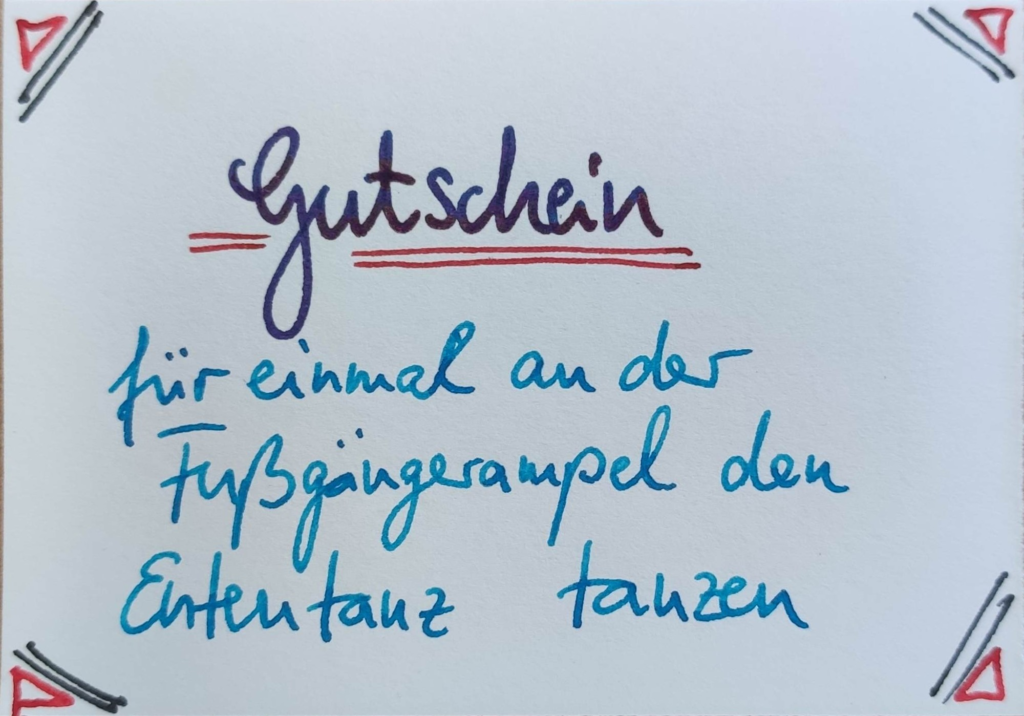 Gutschein
für einmal an der
Fußgängerampel den
Ententanz tanzen